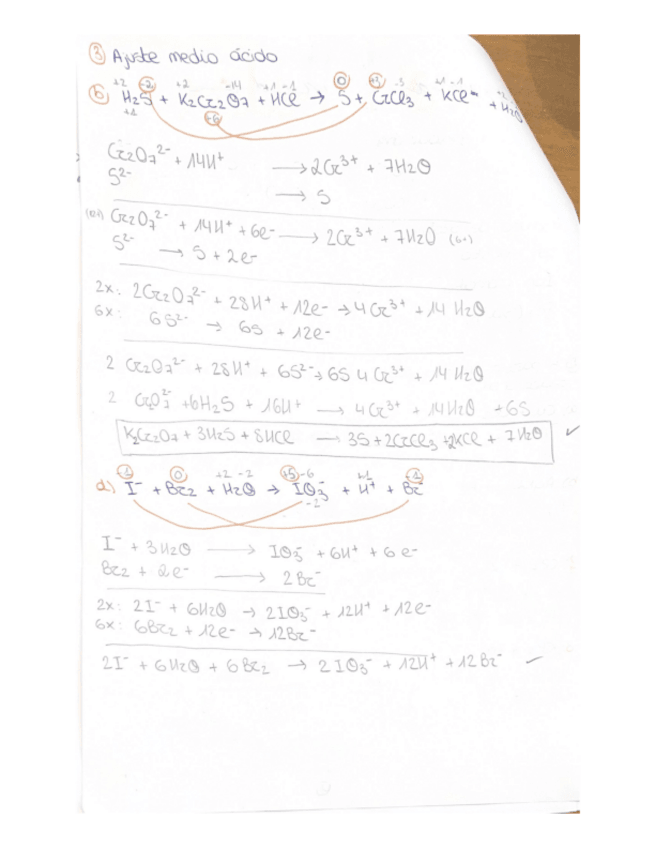 ③ Ajuste medio ácido
b) H2S + K2Cr2O7 + HCl → S + CrCl3 + KCl + H2O
Cr2O7²⁻ + 14H⁺ → 2Cr³⁺ + 7H2O
S²⁻ → S
Cr2O7²⁻ + 14H⁺ + 6e⁻ → 2Cr³⁺ + 7H2O
S²⁻ → S + 2e⁻
2x: 2Cr2O7²⁻ + 28H⁺ + 12e⁻ → 4Cr³⁺ + 14H2O
6x: 6S²⁻ → 6S + 12e⁻
2 Cr2O7²⁻ + 28H⁺ + 6S²⁻ → 6S 4Cr³⁺ + 14H2O
2 + 6H2S + 16H⁺ → 4Cr³⁺ + 14H2O + 6S
K2Cr2O7 + 3H2S + 8HCl → 3S + 2CrCl3 + 2KCl + 7H2O ✓
d) I⁻ + Br2 + H2O → IO3⁻ + H⁺ + Br⁻
I⁻ + 3H2O → IO3⁻ + 6H⁺ + 6e⁻
Br2 + 2e⁻ → 2Br⁻
2x: 2I⁻ + 6H2O → 2IO3⁻ + 12H⁺ + 12e⁻
6x: 6Br2 + 12e⁻ → 12Br⁻
2I⁻ + 6H2O + 6Br2 → 2IO3⁻ + 12H⁺ + 12Br⁻ ✓